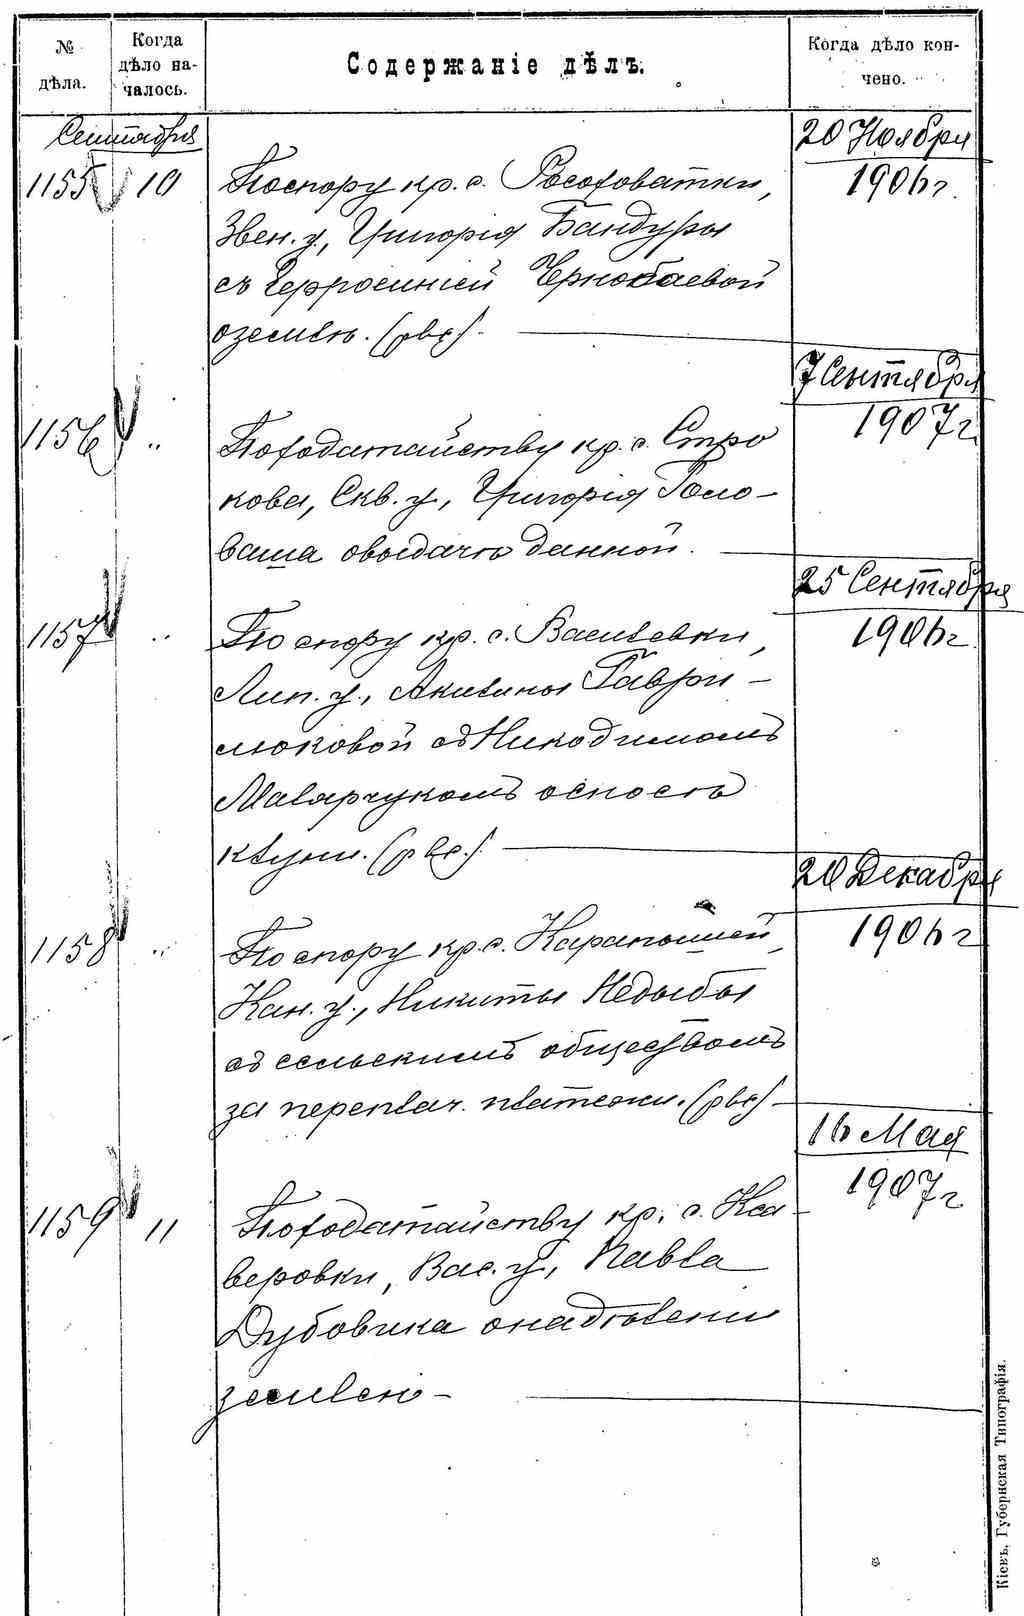 № дѣла.
Когда дѣло на-
чалось.
Содержаніе дѣлъ.
Когда дѣло кон-
чено.
Сентября
20 Ноября
1155 10 По спору кр. с. Росоховатки, 1906 г.
Звен. у., Григорія Бандуры
съ Чернобаевой
о землѣ.
7 Сентября
1156 " По ходатайству кр. с. Стро 1907 г.
кова, Скв. у., Григорія Голо-
ваша о выдачѣ данной.
25 Сентября
1157 " По спору кр. с. Васильевки, 1906 г.
Лип. у., Акилины Гаври-
люковой съ Никодимомъ
о сносѣ
клуни.
20 Декабря
1158 " По спору кр. с. Карапышей, 1906 г.
Кан. у., Никиты Недыбы
съ сельскимъ обществомъ
за переплач. платежи.
16 Мая
1159 11 По ходатайству кр. с. Кса- 1907 г.
веровки, Вас. у., Павла
Дубовика о надѣленіи
землею -
Кіевъ, Губернская Типографія.